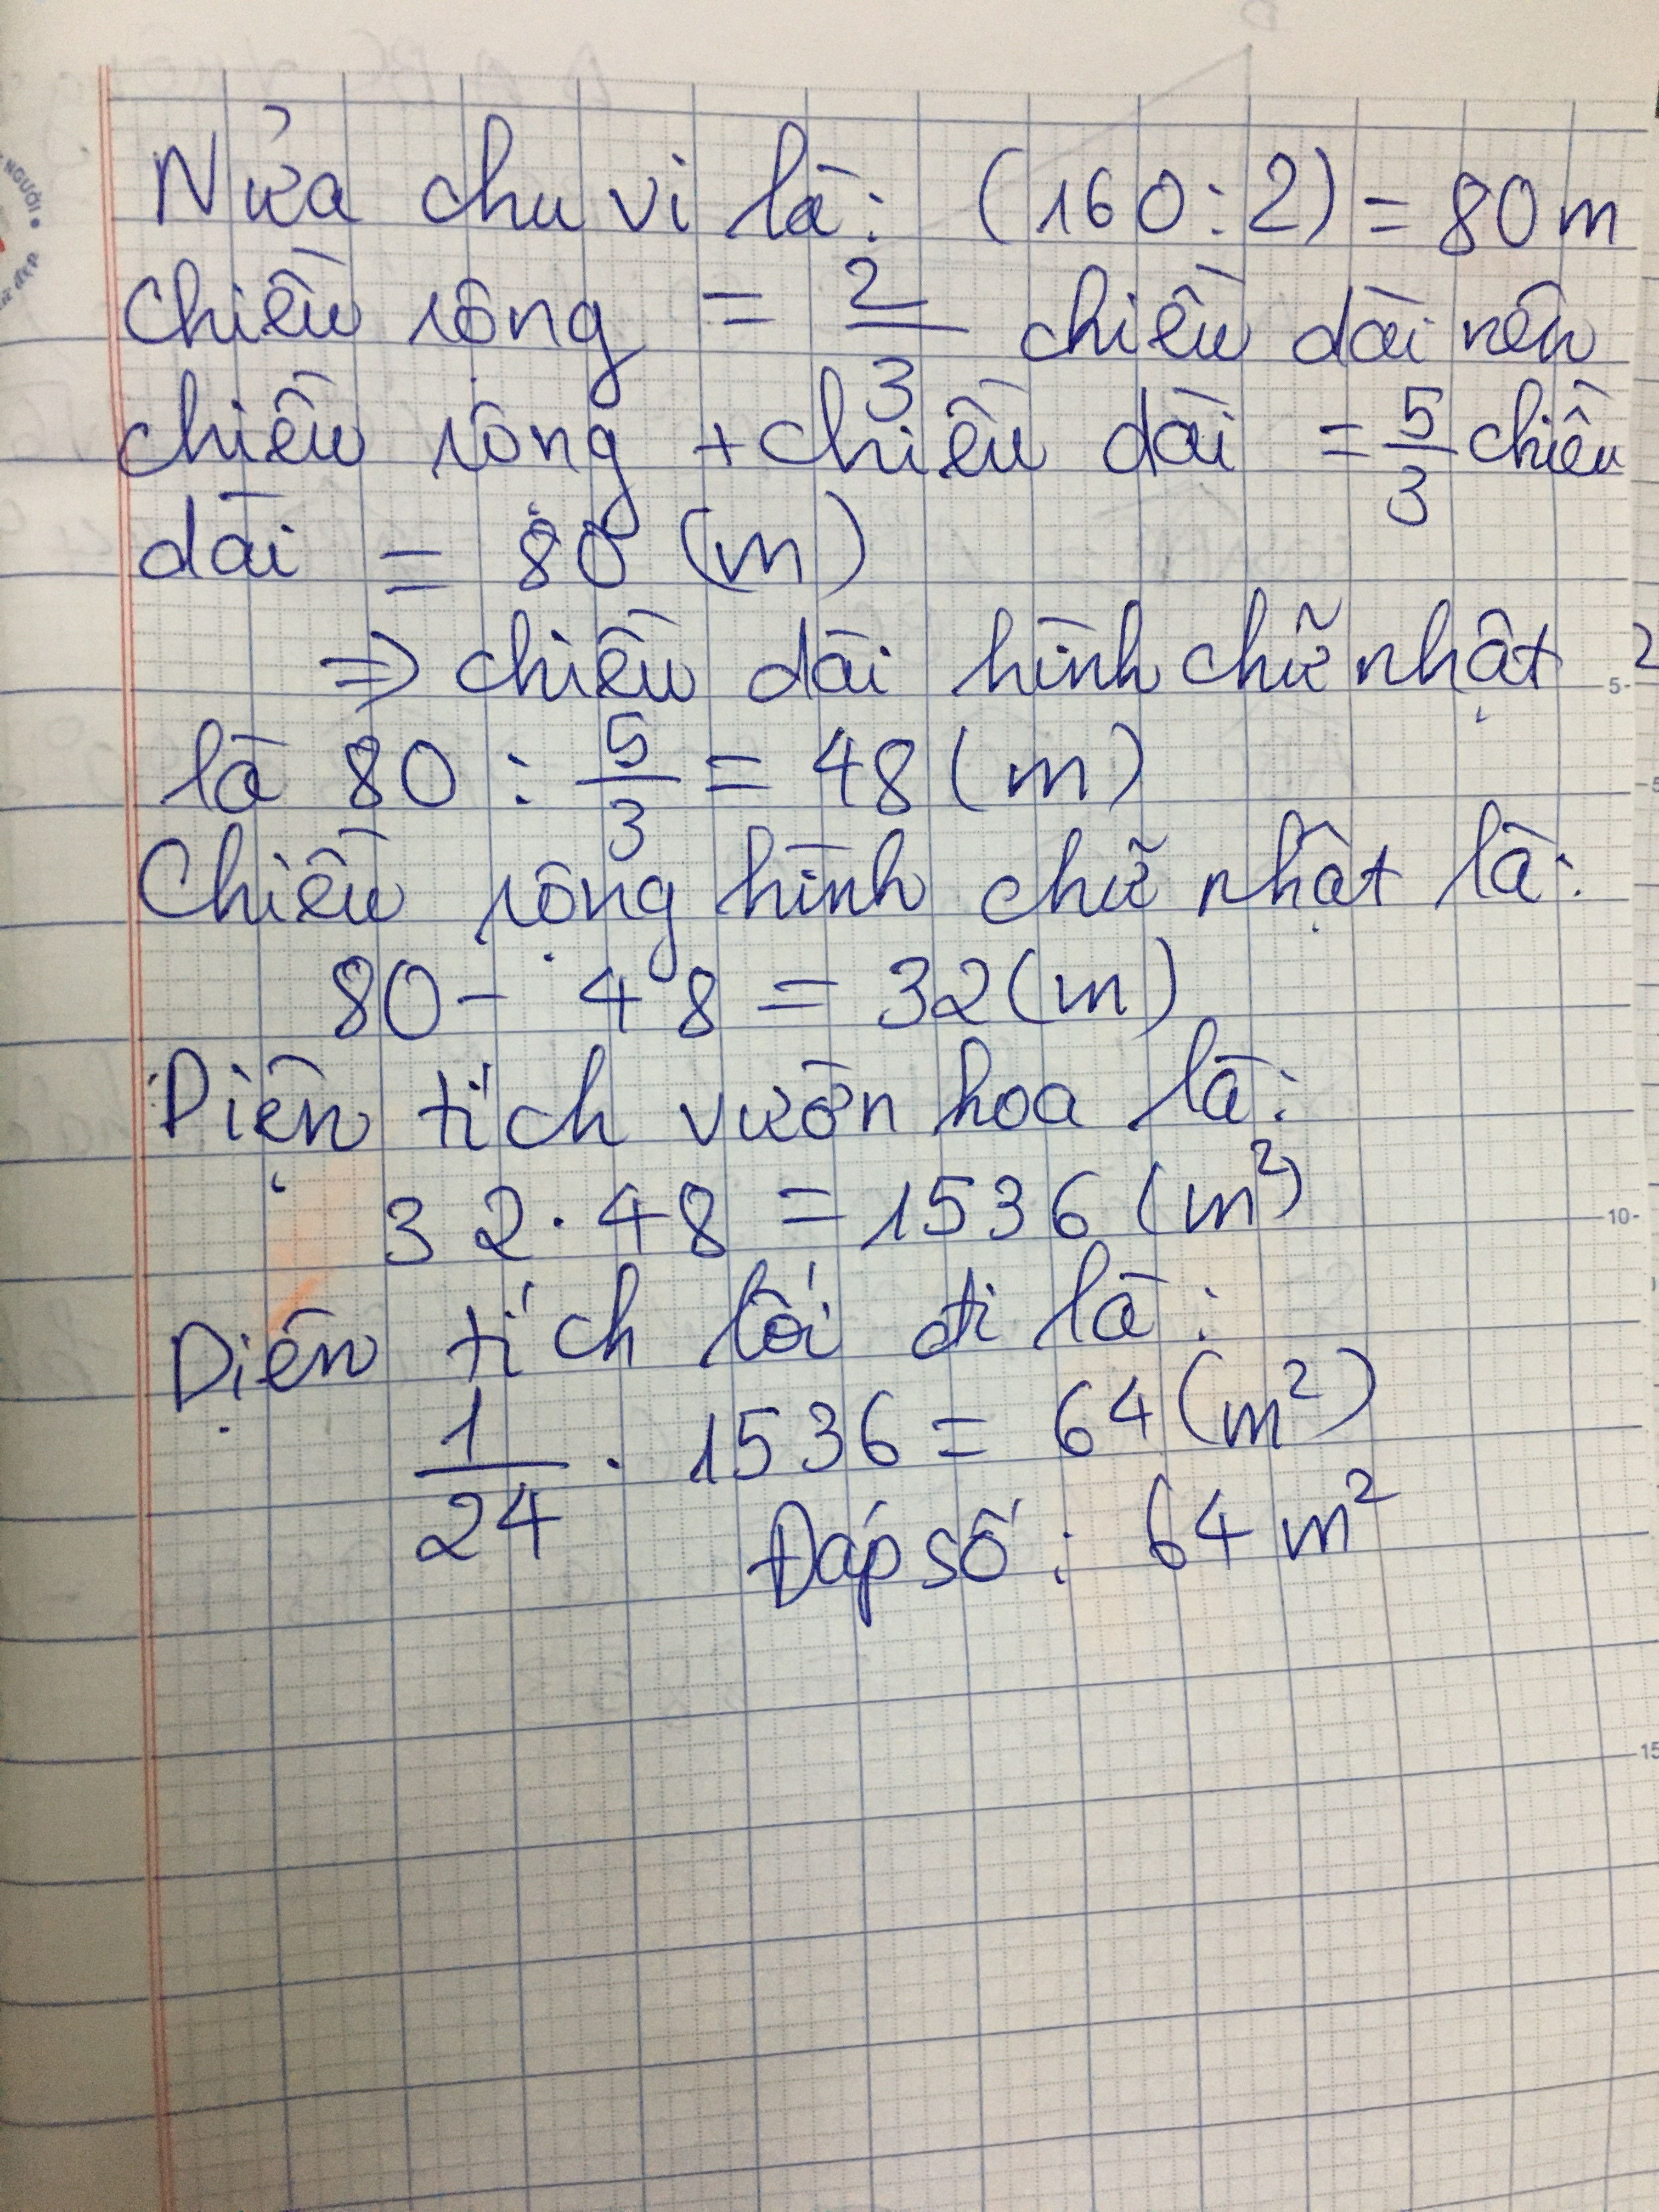 Nửa chu vi là: (160:2) = 80 m
Chiều rộng = 2/3 chiều dài nên
chiều rộng + chiều dài = 5/3 chiều
dài = 80 (m)
=> chiều dài hình chữ nhật
là 80 : 5/3 = 48 (m)
Chiều rộng hình chữ nhật là:
80 - 48 = 32 (m)
Diện tích vườn hoa là:
32 . 48 = 1536 (m²)
Diện tích lối đi là:
1/24 . 1536 = 64 (m²)
Đáp số: 64 m²
NGƯỜI
ĐẸP
5-
10-
15